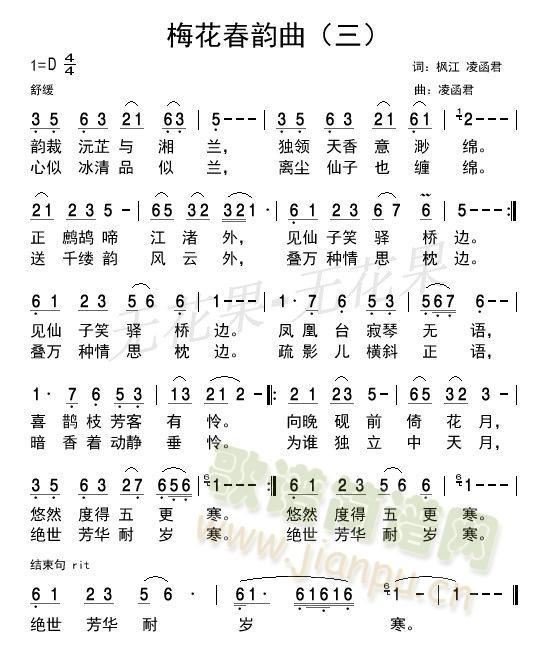 梅花春韵曲（三）
1=D 4/4
词：枫江 凌函君
舒缓
曲：凌函君
3 5 6 3 21 63 | 5 - - - | 3 5 6 3 21 61 | 1/2 - - - |
韵裁 沅芷 与 湘 兰， 独领 天香 意 渺 绵。
心似 冰清 品 似 兰， 离尘 仙子 也 缠 绵。
21 2 3 5 - | 65 32 321 · | 6 1 2 3 6 7 6 | 5 - - - :||
正 鹧鸪 啼 江 渚 外， 见仙 子笑 驿 桥 边。
送 千缕 韵 风 云 外， 叠万 种情 思 枕 边。
6 1 2 3 5 6 6 | 1 - - - | 1 · 7 6 5 3 | 5 - 567 6 |
见仙 子笑 驿 桥 边。 凤 凰 台 寂琴 无 语，
叠万 种情 思 枕 边。 疏 影 儿 横斜 正 语，
1 · 7 6 5 3 | 13 21 2 - ||: 21 2 3 5 - | 65 3 2 1 - |
喜 鹊 枝 芳客 有 怜。 向晚 砚 前 倚 花 月，
暗 香 着 动静 垂 怜。 为谁 独 立 中 天 月，
3 5 6 3 27 656 | 6/1 - - - :|| 6 1 2 3 5 6 6 | 6/1 - - - |
悠然 度得 五 更 寒。 悠然 度得 五 更 寒。
绝世 芳华 耐 岁 寒。 绝世 芳华 耐 岁 寒。
结束句 rit
6 1 2 3 5 - | 61 · 61616 | 6/1 - 1 - | 1 - - - ||
绝世 芳华 耐 岁 寒。
无花果-无花果
歌谱简谱网
www.jianpu.cn